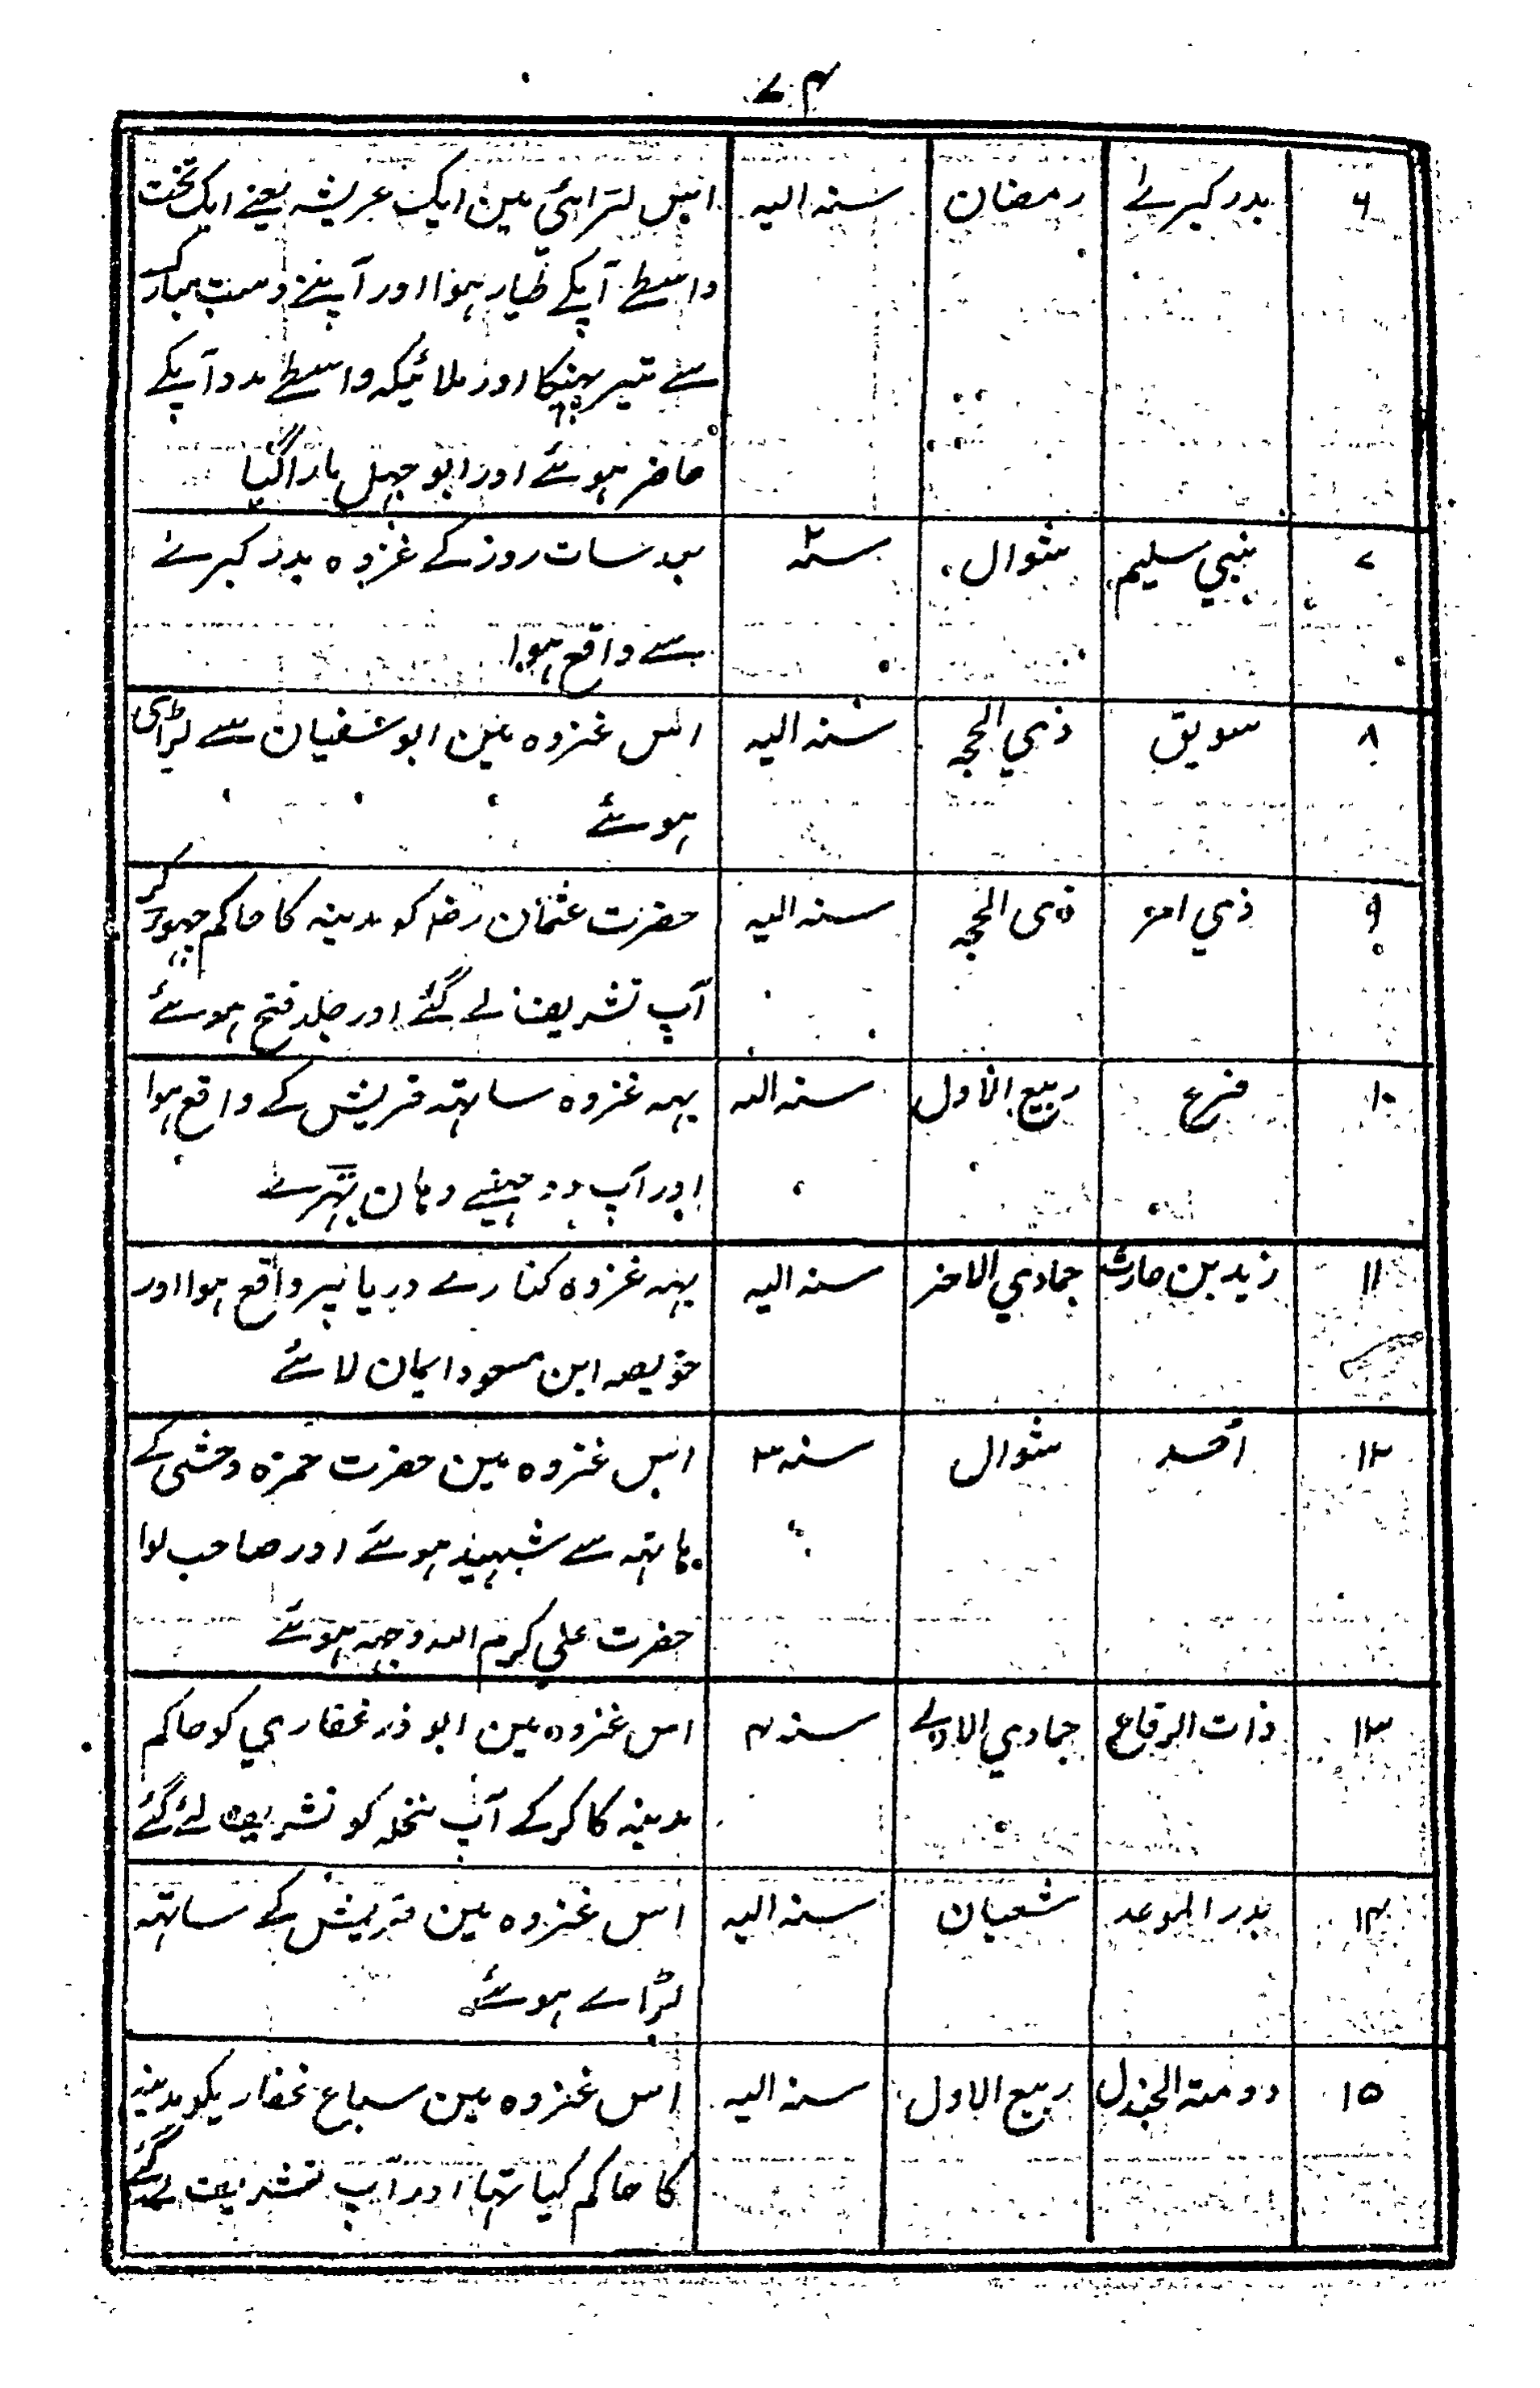 ۴۷
۶ بدر کبرے رمضان سنہ الیہ اس لڑائی مین ایک عریشہ یعنے ایک تخت
واسطے آپکے طیار ہوا اور آپنے دست مبارک
سے تیر پہینکا اور ملائیکہ واسطے مدد آپکے
حاضر ہوئے اور ابو جہل مارا گیا
۷ بنی سلیم شوال سنہ ۲ بعد سات روز کے غزوہ بدر کبرے
سے واقع ہوا
۸ سویق ذی الحجہ سنہ الیہ اس غزوہ مین ابو سفیان سے لڑائی
ہوئے
۹ ذی امر ذی الحجہ سنہ الیہ حضرت عثمان رضہ کو مدینہ کا حاکم چہوڑ کر
آپ تشریف لے گئے اور جلد فتح ہوئے
۱۰ فرع ربیع الاول سنہ الیہ یہہ غزوہ ساتہہ قریش کے واقع ہوا
اور آپ دو مہینے وہان ٹہرے
۱۱ زید بن حارث جمادی الاخر سنہ الیہ یہہ غزوہ کنارے دریا پر واقع ہوا اور
ابن مسعود ایمان لائے
۱۲ اُحد شوال سنہ ۳ اس غزوہ مین حضرت حمزہ وحشی کے
ہاتہہ سے شہید ہوئے اور صاحب لوا
حضرت علی کرم اللہ وجہہ ہوئے
۱۳ ذات الرقاع جمادی الاولے سنہ ۴ اس غزوہ مین ابو ذر غفاری کو حاکم
مدینہ کا کر کے آپ نخلہ کو تشریف لے گئے
۱۴ بدر الموعد شعبان سنہ الیہ اس غزوہ مین قریش کے ساتہہ
لڑاے ہوئے
۱۵ دومتہ الجندل ربیع الاول سنہ الیہ اس غزوہ مین سباع غفاریکو مدینہ
کا حاکم کیا تہا اور آپ تشریف لے گئے